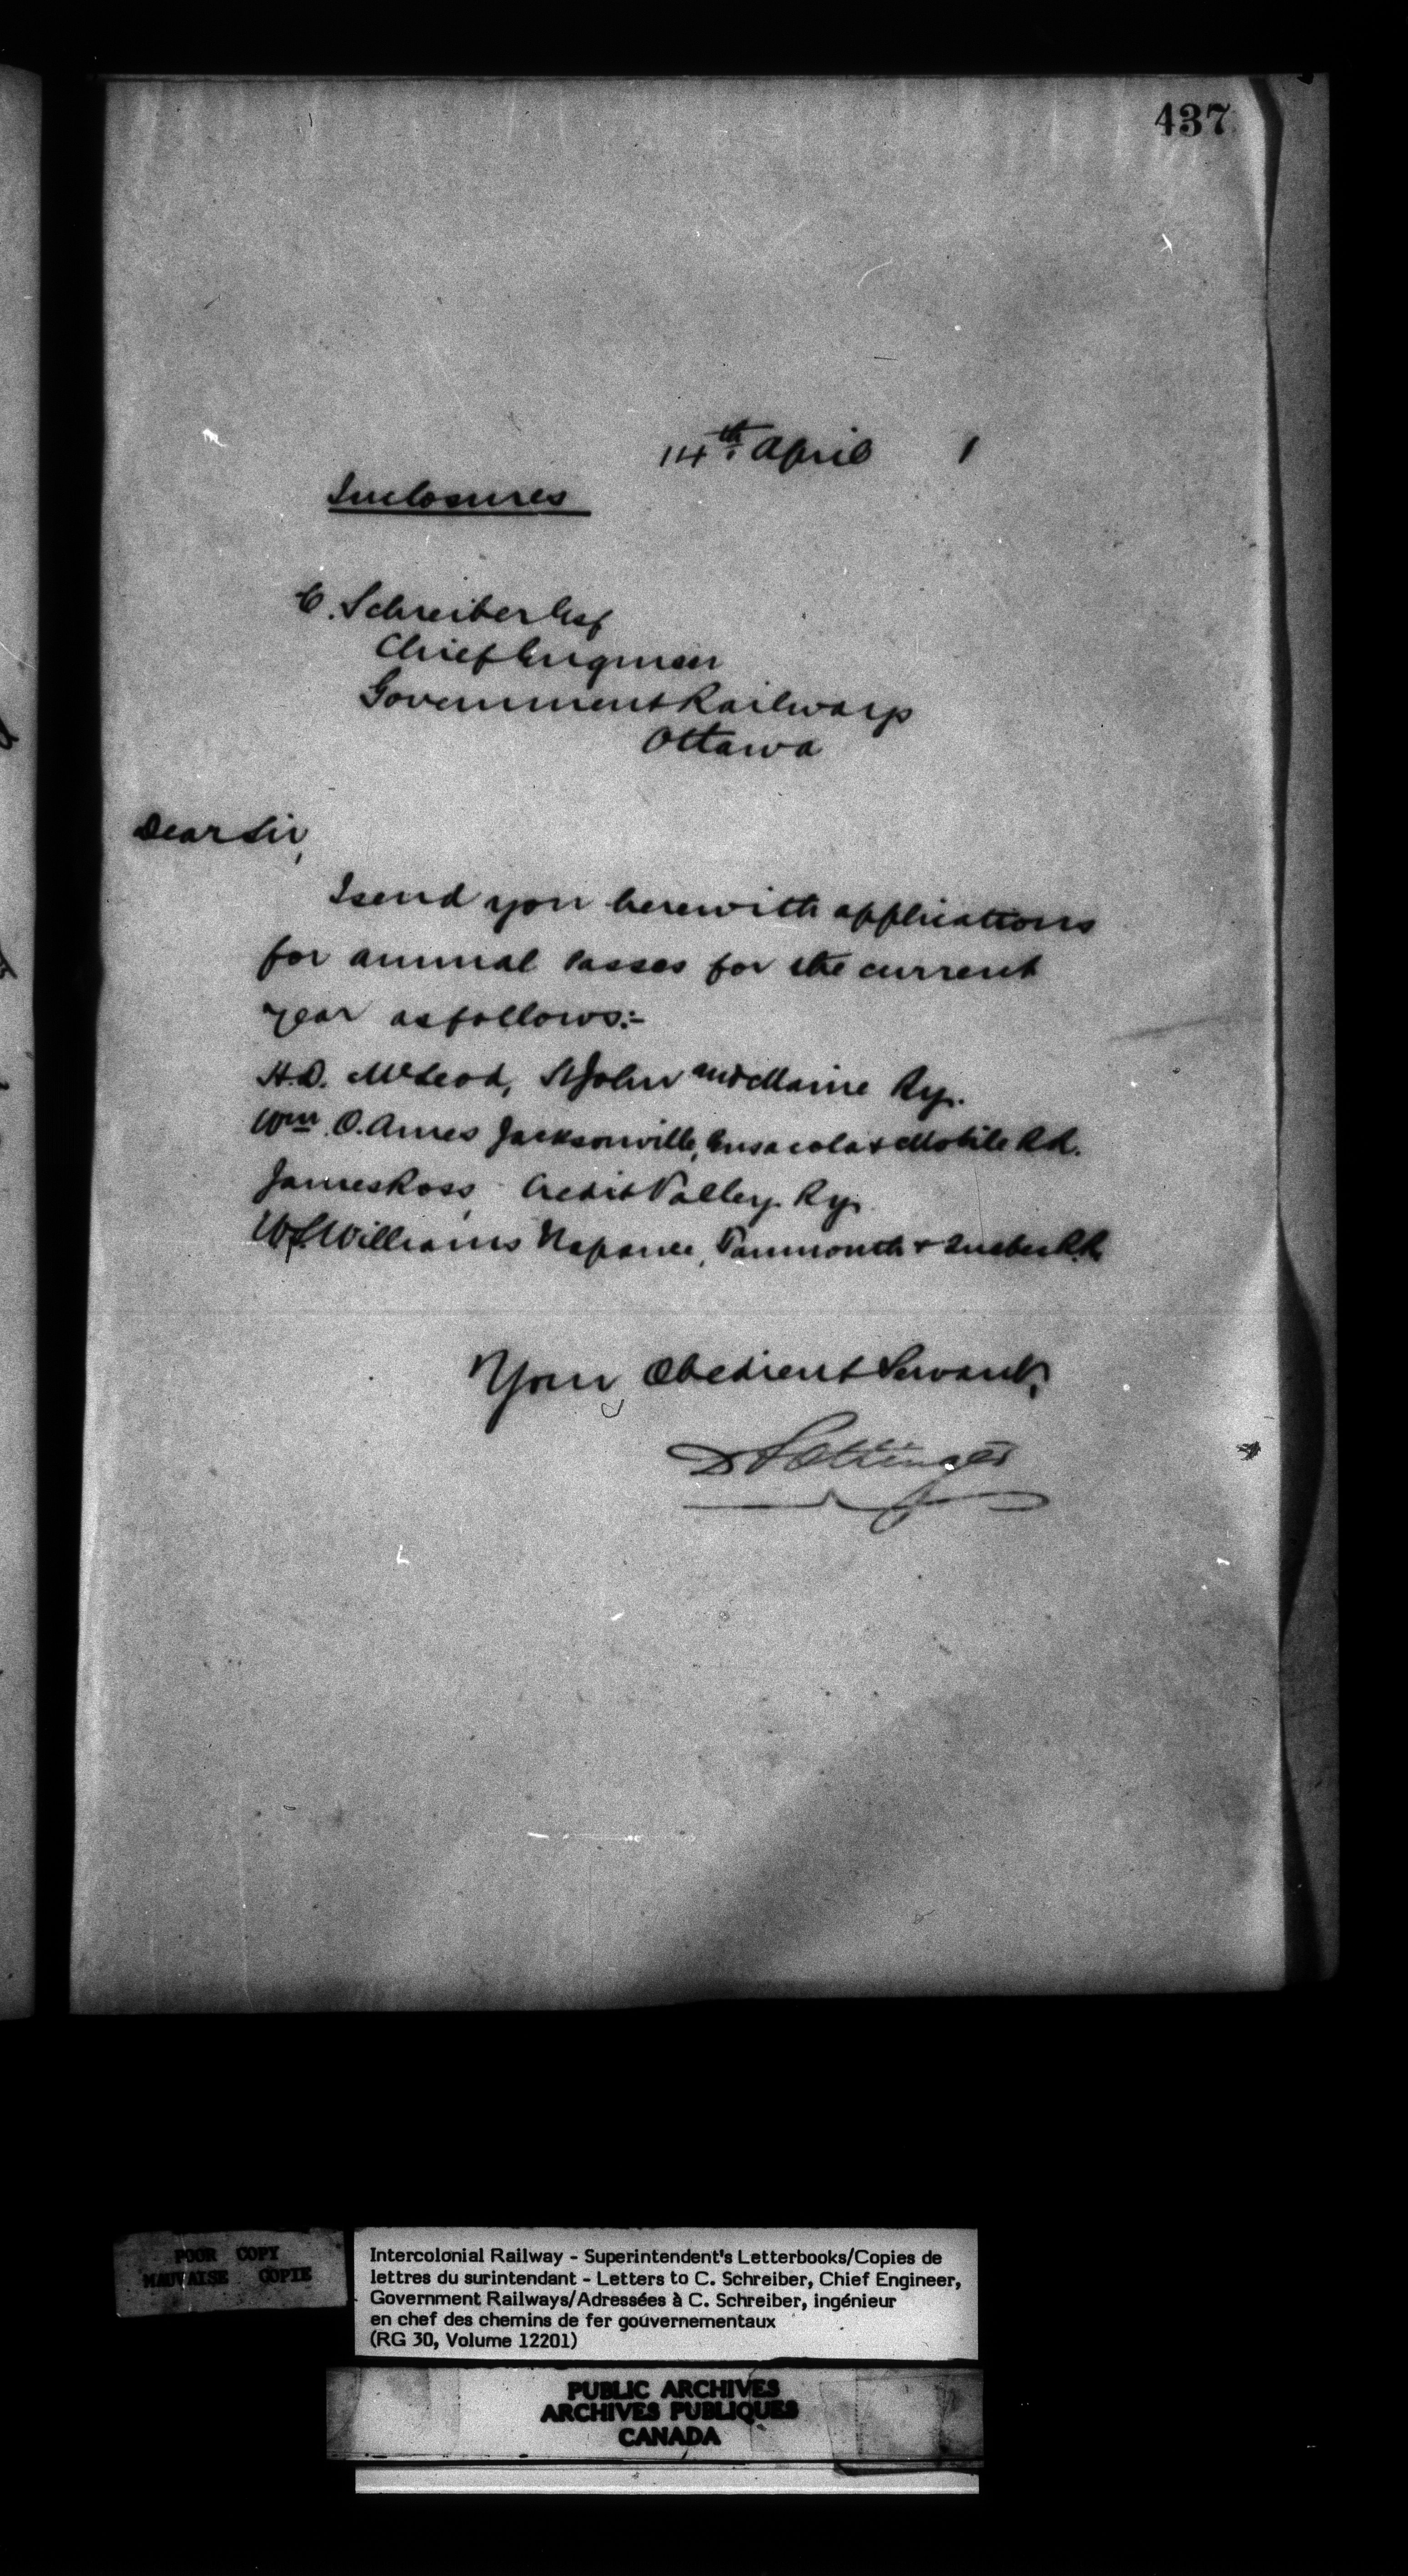 437
14th April 1
Inclosures
C. Schreiber Esq
Chief Engineer
Government Railways
Ottawa
Dear Sir,
I send you herewith applications
for annual passes for the current
year as follows:-
H.D. McLeod, St John and Maine Ry.
Wm O. Ames Jacksonville, Pensacola & Mobile Rd.
James Ross, Credit Valley Ry.
Williams Napanee, Tamworth & Quebec R.R.
Your Obedient Servant,
D Pottinger
POOR COPY
MAUVAISE COPIE
Intercolonial Railway - Superintendent's Letterbooks/Copies de
lettres du surintendant - Letters to C. Schreiber, Chief Engineer,
Government Railways/Adressées à C. Schreiber, ingénieur
en chef des chemins de fer gouvernementaux
(RG 30, Volume 12201)
PUBLIC ARCHIVES
ARCHIVES PUBLIQUES
CANADA